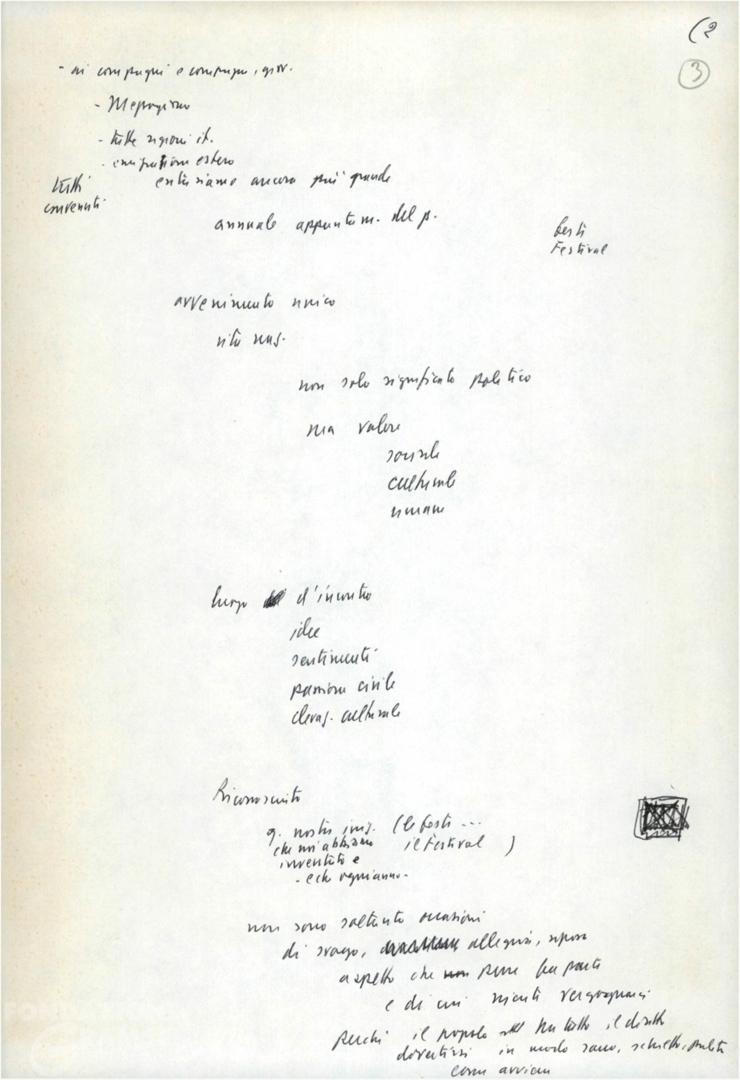 (2
3
- ai compagni e compagne, giov.
- Mezzogiorno
- tutte regioni it.
- emigrazione estero
tutti
convenuti
entusiasmo ancora più grande
annuale appuntam. del p.
festi
Festival
avvenimento unico
vita naz.
non solo significato politico
ma valore
sociale
culturale
umano
luogo d'incontro
idee
sentimenti
passione civile
elevaz. culturale
Riconosciuto
q. nostre iniz. (le feste ...
che noi abbiamo il Festival )
inventato e
- e che ogni anno -
non sono soltanto occasioni
di svago, allegria, riposo
aspetto che pure fa parte
e di cui niente vergognarci
perché il popolo ha tutto il diritto
divertirsi in modo sano, schietto, pulito
come avviene